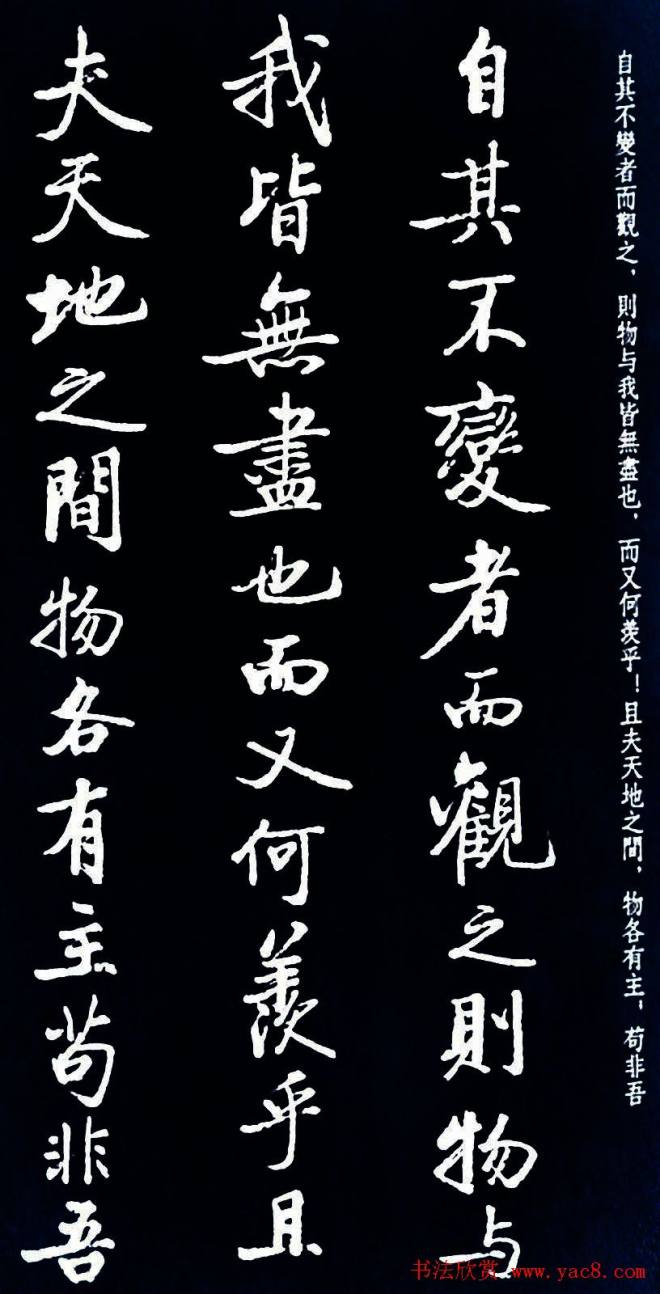 自其不變者而觀之，則物与我皆無盡也，而又何羨乎！且夫天地之間，物各有主，苟非吾
自其不變者而觀之則物与
我皆無盡也而又何羨乎且
夫天地之間物各有主苟非吾
书法欣赏 www.yac8.com